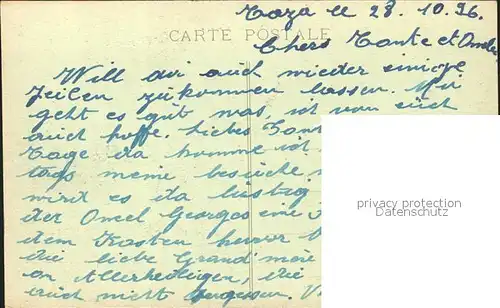 Taza le 28. 10. 36.
CARTE POSTALE
Chers Tante et Oncle
Will dir auch wieder einige
Zeilen zukommen lassen. Mir
geht es gut was, ich von euch
auch hoffe. Liebes
Tage da komme ich
tags meine besuche
wird es da lustig
der Oncel Georges eine
dem Kasten hervor
die liebe Grand mère
an Allerheiligen, die
euch nicht vergessen.
privacy protection
Datenschutz